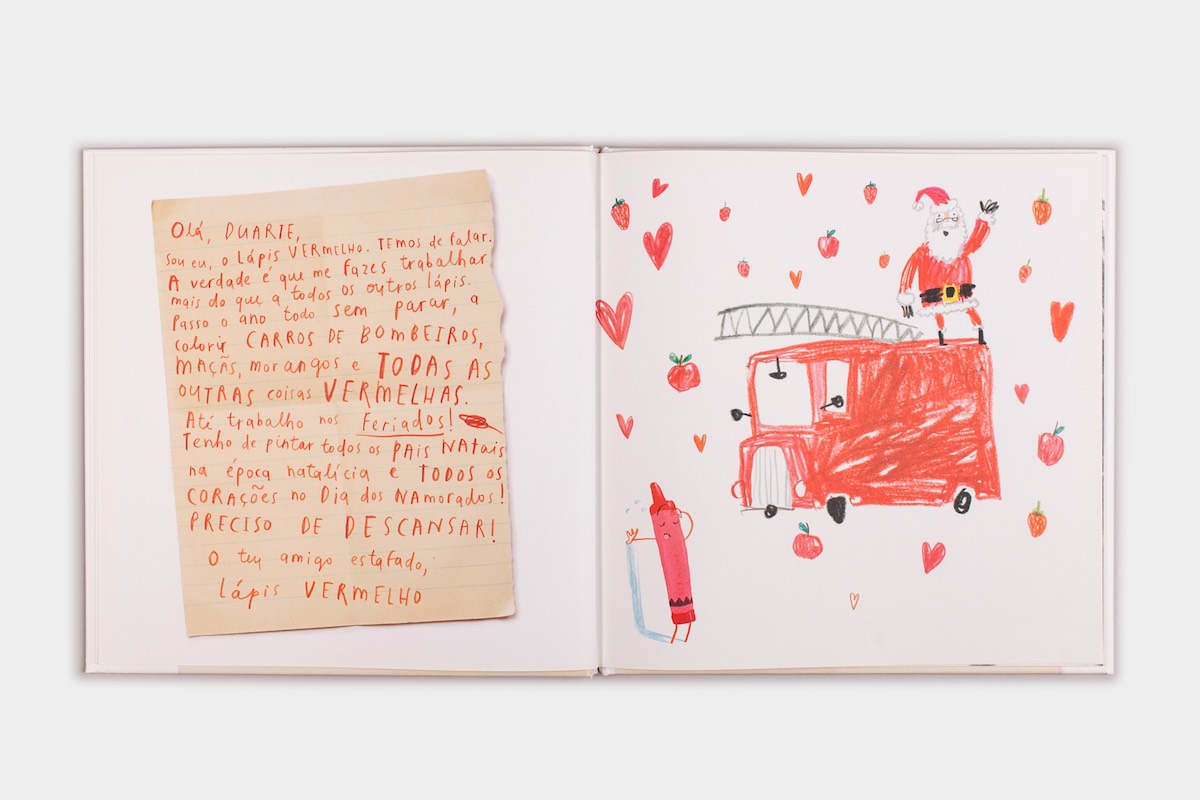 Olá, DUARTE,
Sou eu, o lápis VERMELHO. TEMOS de falar.
A verdade é que me fazes trabalhar
mais do que a todos os outros lápis.
Passo o ano todo sem parar, a
colorir CARROS DE BOMBEIROS,
MAÇÃS, morangos e TODAS AS
OUTRAS coisas VERMELHAS.
Até trabalho nos Feriados!
Tenho de pintar todos os PAIS NATAIS
na época natalícia e TODOS OS
CORAÇÕES no DIA dos NAMORADOS!
PRECISO DE DESCANSAR!
O teu amigo estafado,
Lápis VERMELHO